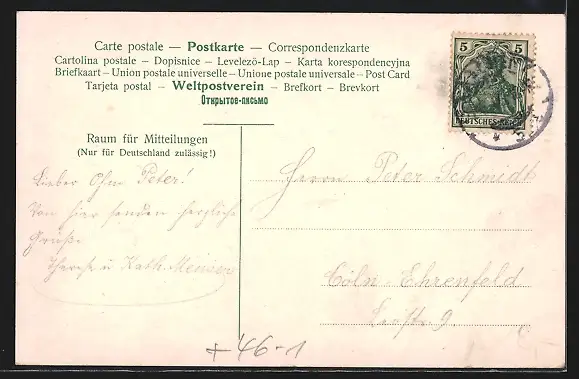 Carte postale — Postkarte — Correspondenzkarte
Cartolina postale — Dopisnice — Levelezö-Lap — Karta korespondencyjna
Briefkaart — Union postale universelle — Unione postale universale — Post Card
Tarjeta postal — Weltpostverein — Brefkort — Brevkort
Открытое-письмо
5 5
DEUTSCHES REICH
Raum für Mitteilungen
(Nur für Deutschland zulässig!)
Lieber Ohm Peter!
Von hier senden herzliche
Grüße
Therese u Kath.
Herrn Peter Schmidt
Cöln-Ehrenfeld
9.
+46-1